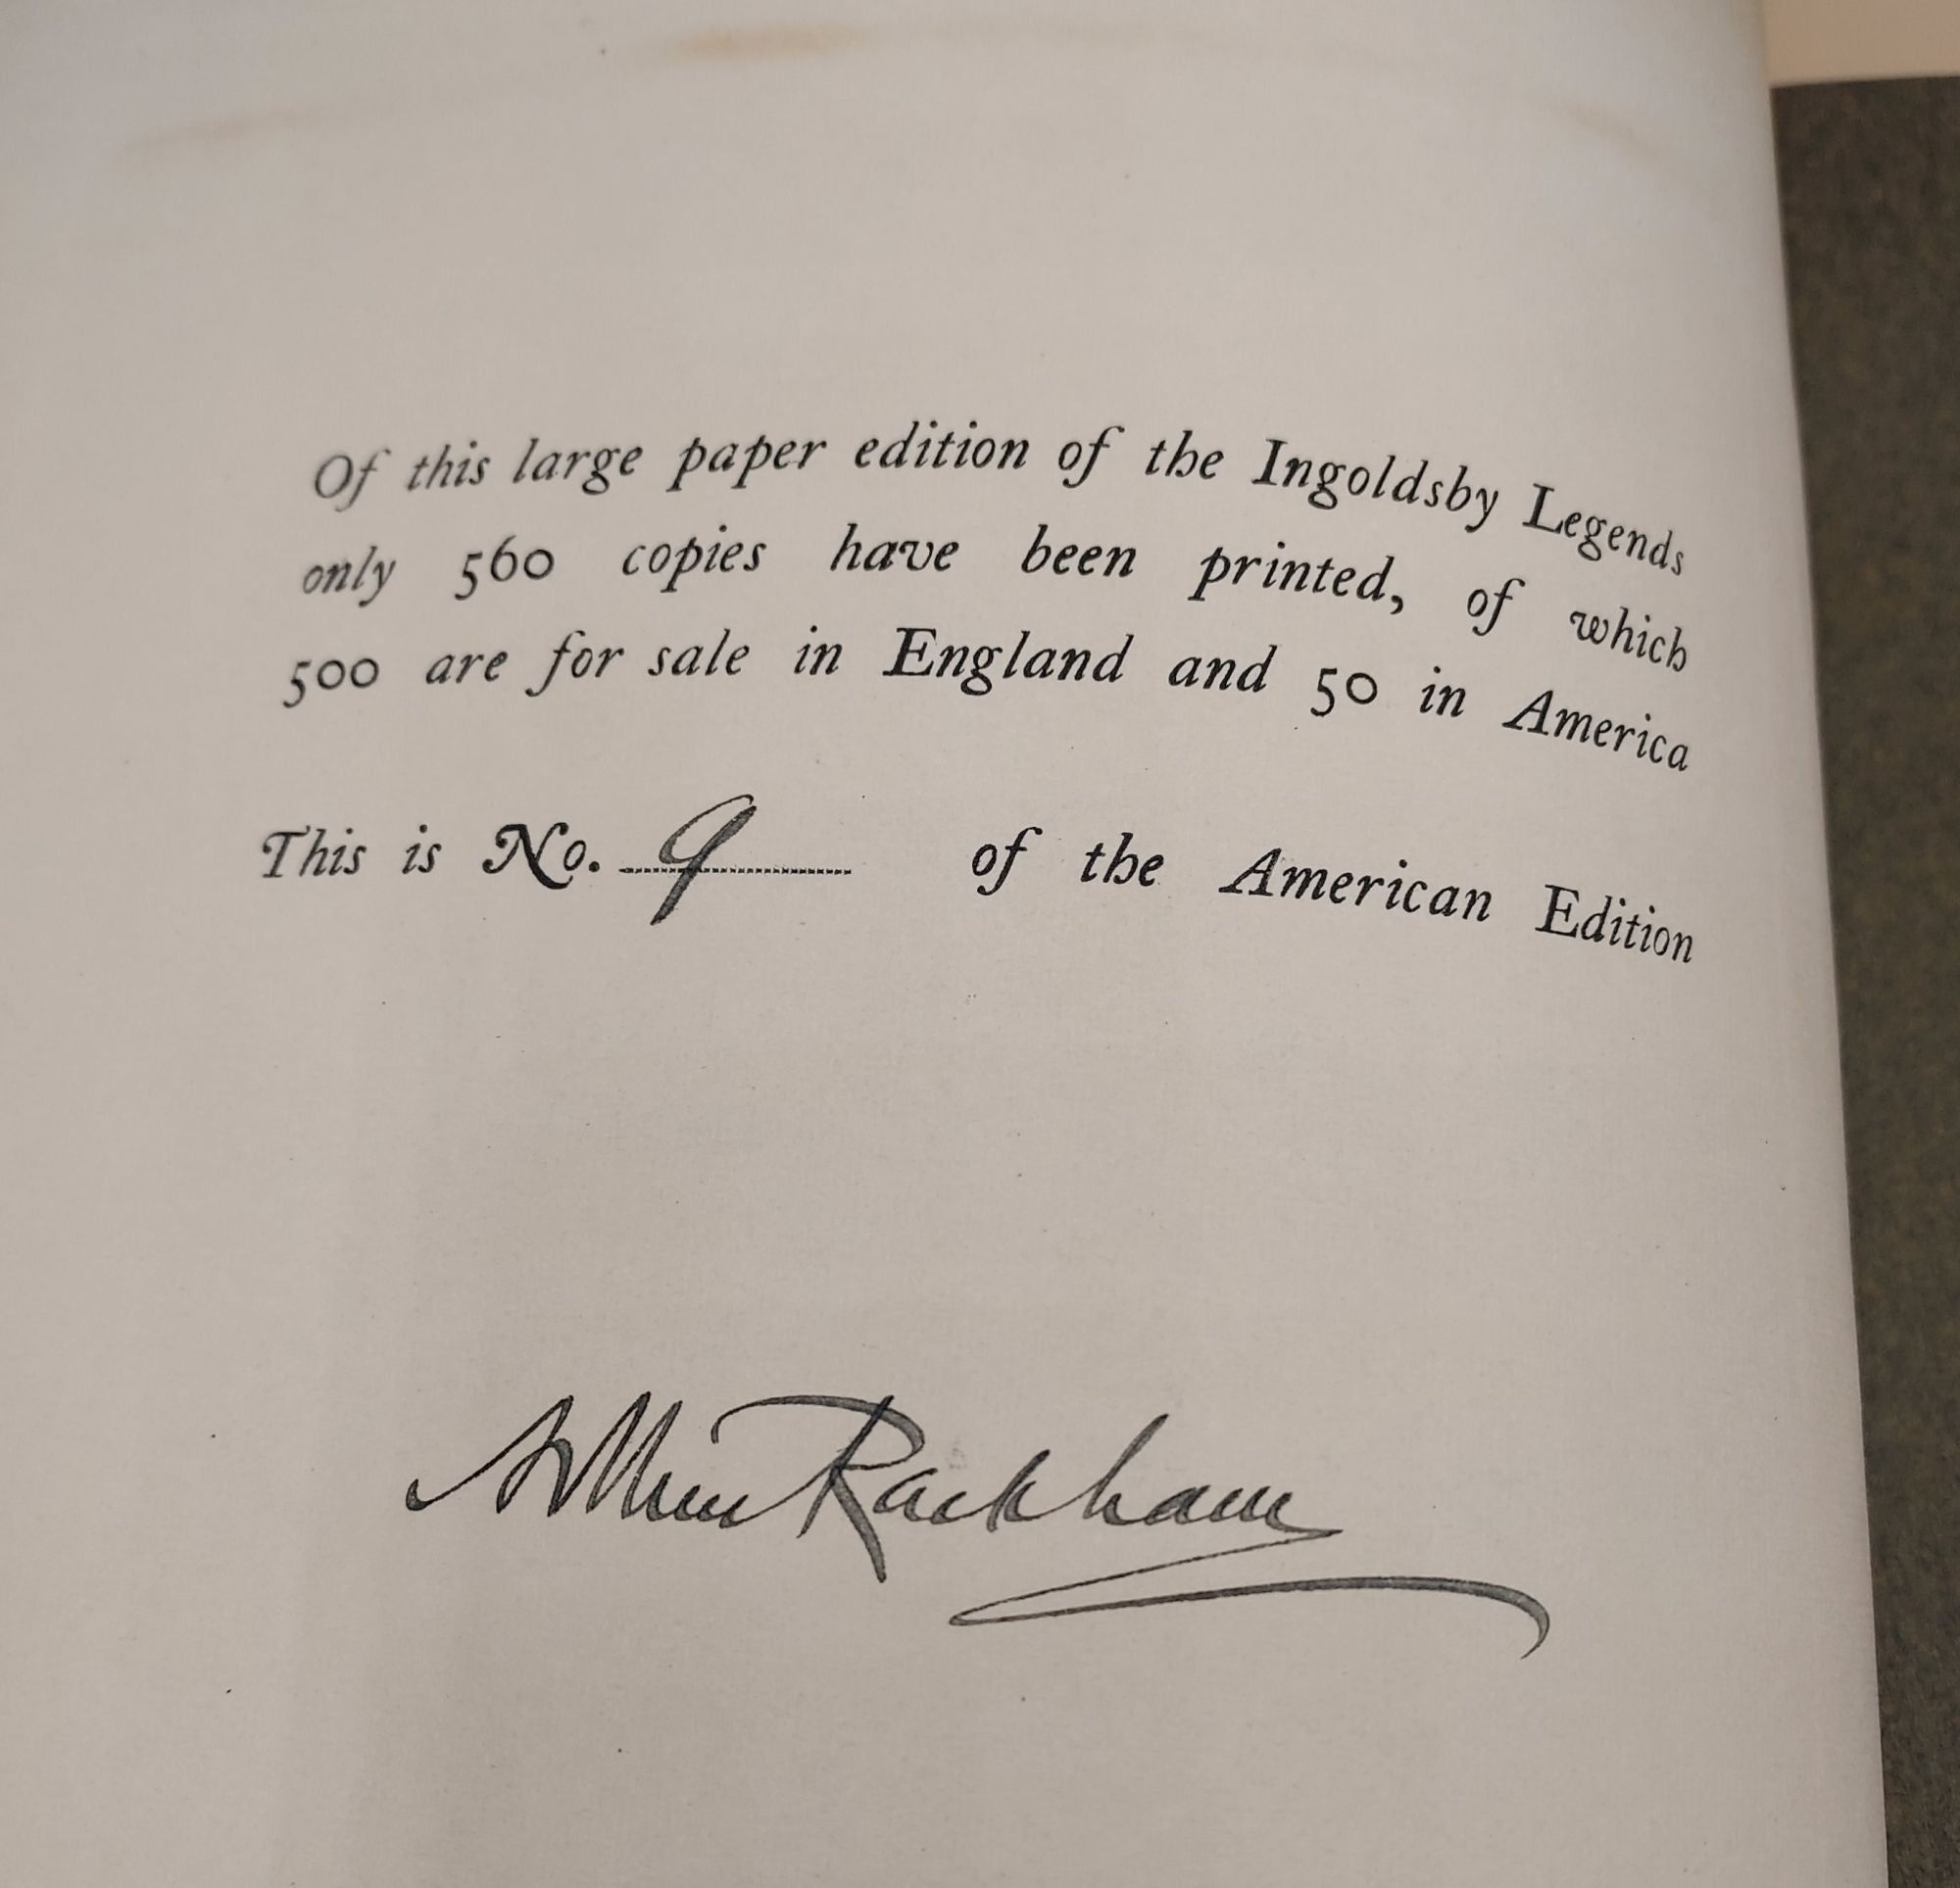 Of this large paper edition of the Ingoldsby Legends
only 560 copies have been printed, of which
500 are for sale in England and 50 in America
This is No. 9 of the American Edition
Arthur Rackham